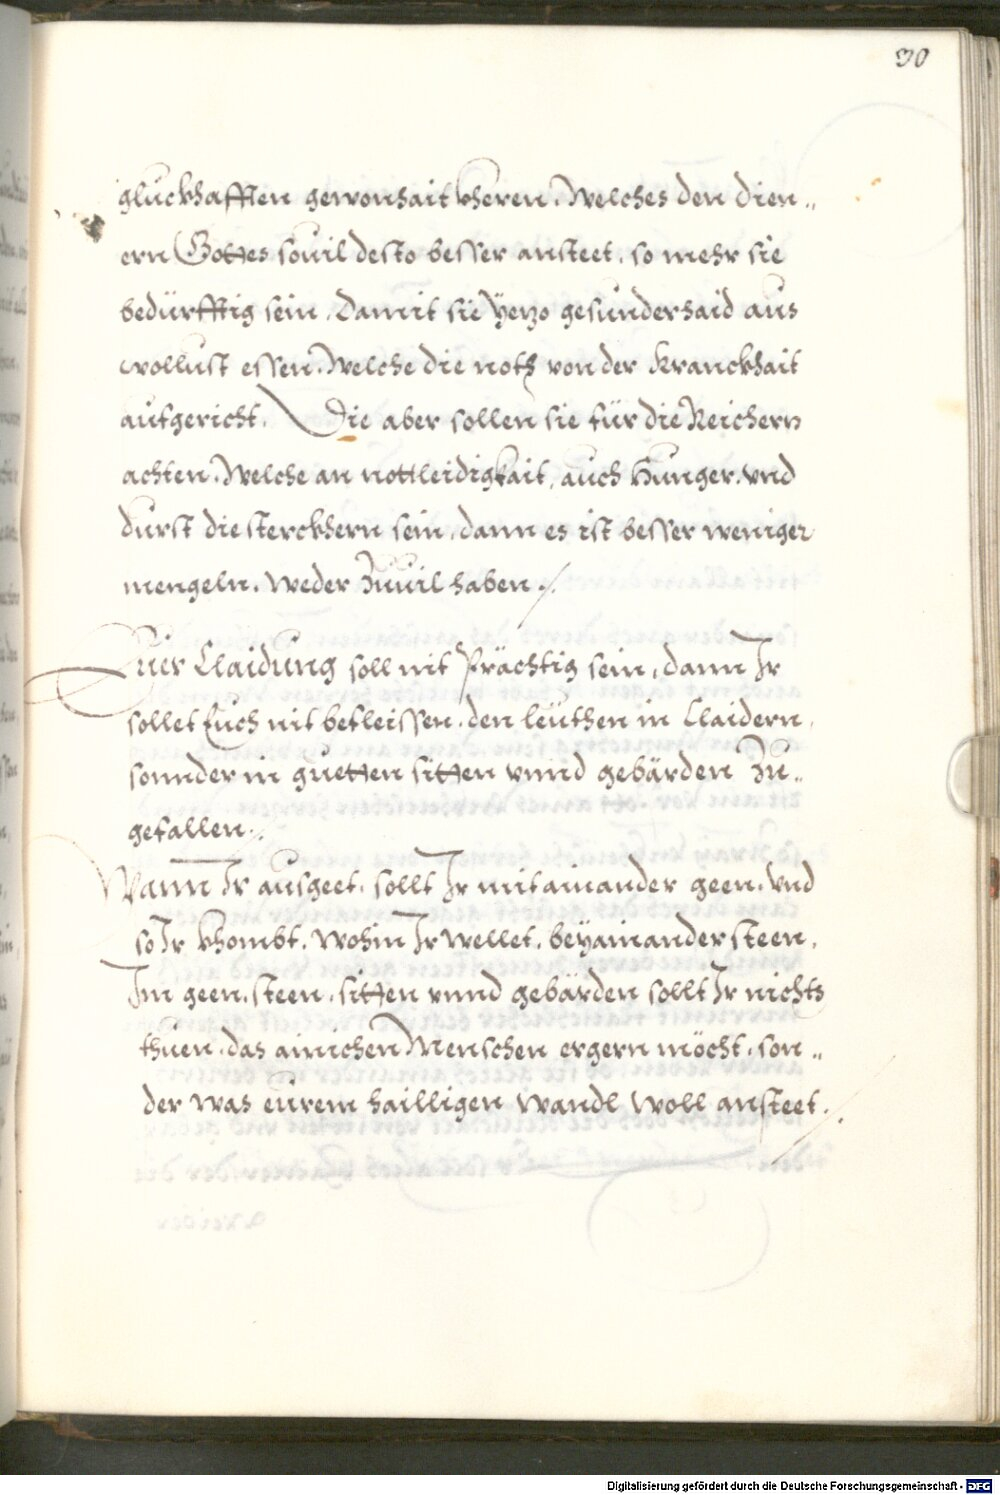 30
gluckhafften gewonhait kheren, Welches den dien„
ern Gottes souil desto besser ansteet, so mehr sie
bedürfftig sein, Damit sie Yetzo gesunderhaid aus
wollust essen, Welche die noth von der Kranckhait
aufgericht. Die aber sollen sie für die Reichern
achten, Welche an nottleidigkait, auch Hunger, vnd
durst die sterckhern sein, dann es ist besser weniger
mengeln, weder Zuuil haben ./.
Euer Claidung soll nit Prächtig sein, dann Ir
sollet Euch nit befleissen, den leüthen in Claidern,
sonnder in guetten sitten vnnd gebärden Zu„
gefallen ./.
Wann Ir ausgeet, sollt Ir mitainander geen, vnd
so Ir khombt, wohin Ir wellet, beyainander steen,
Im geen, steen, sitten vnnd gebärden sollt Ir nichts
thuen, das ainichen Menschen ergern möcht, son„
der was eurem hailligen wandl woll ansteet ./.
Digitalisierung gefördert durch die Deutsche Forschungsgemeinschaft - DFG